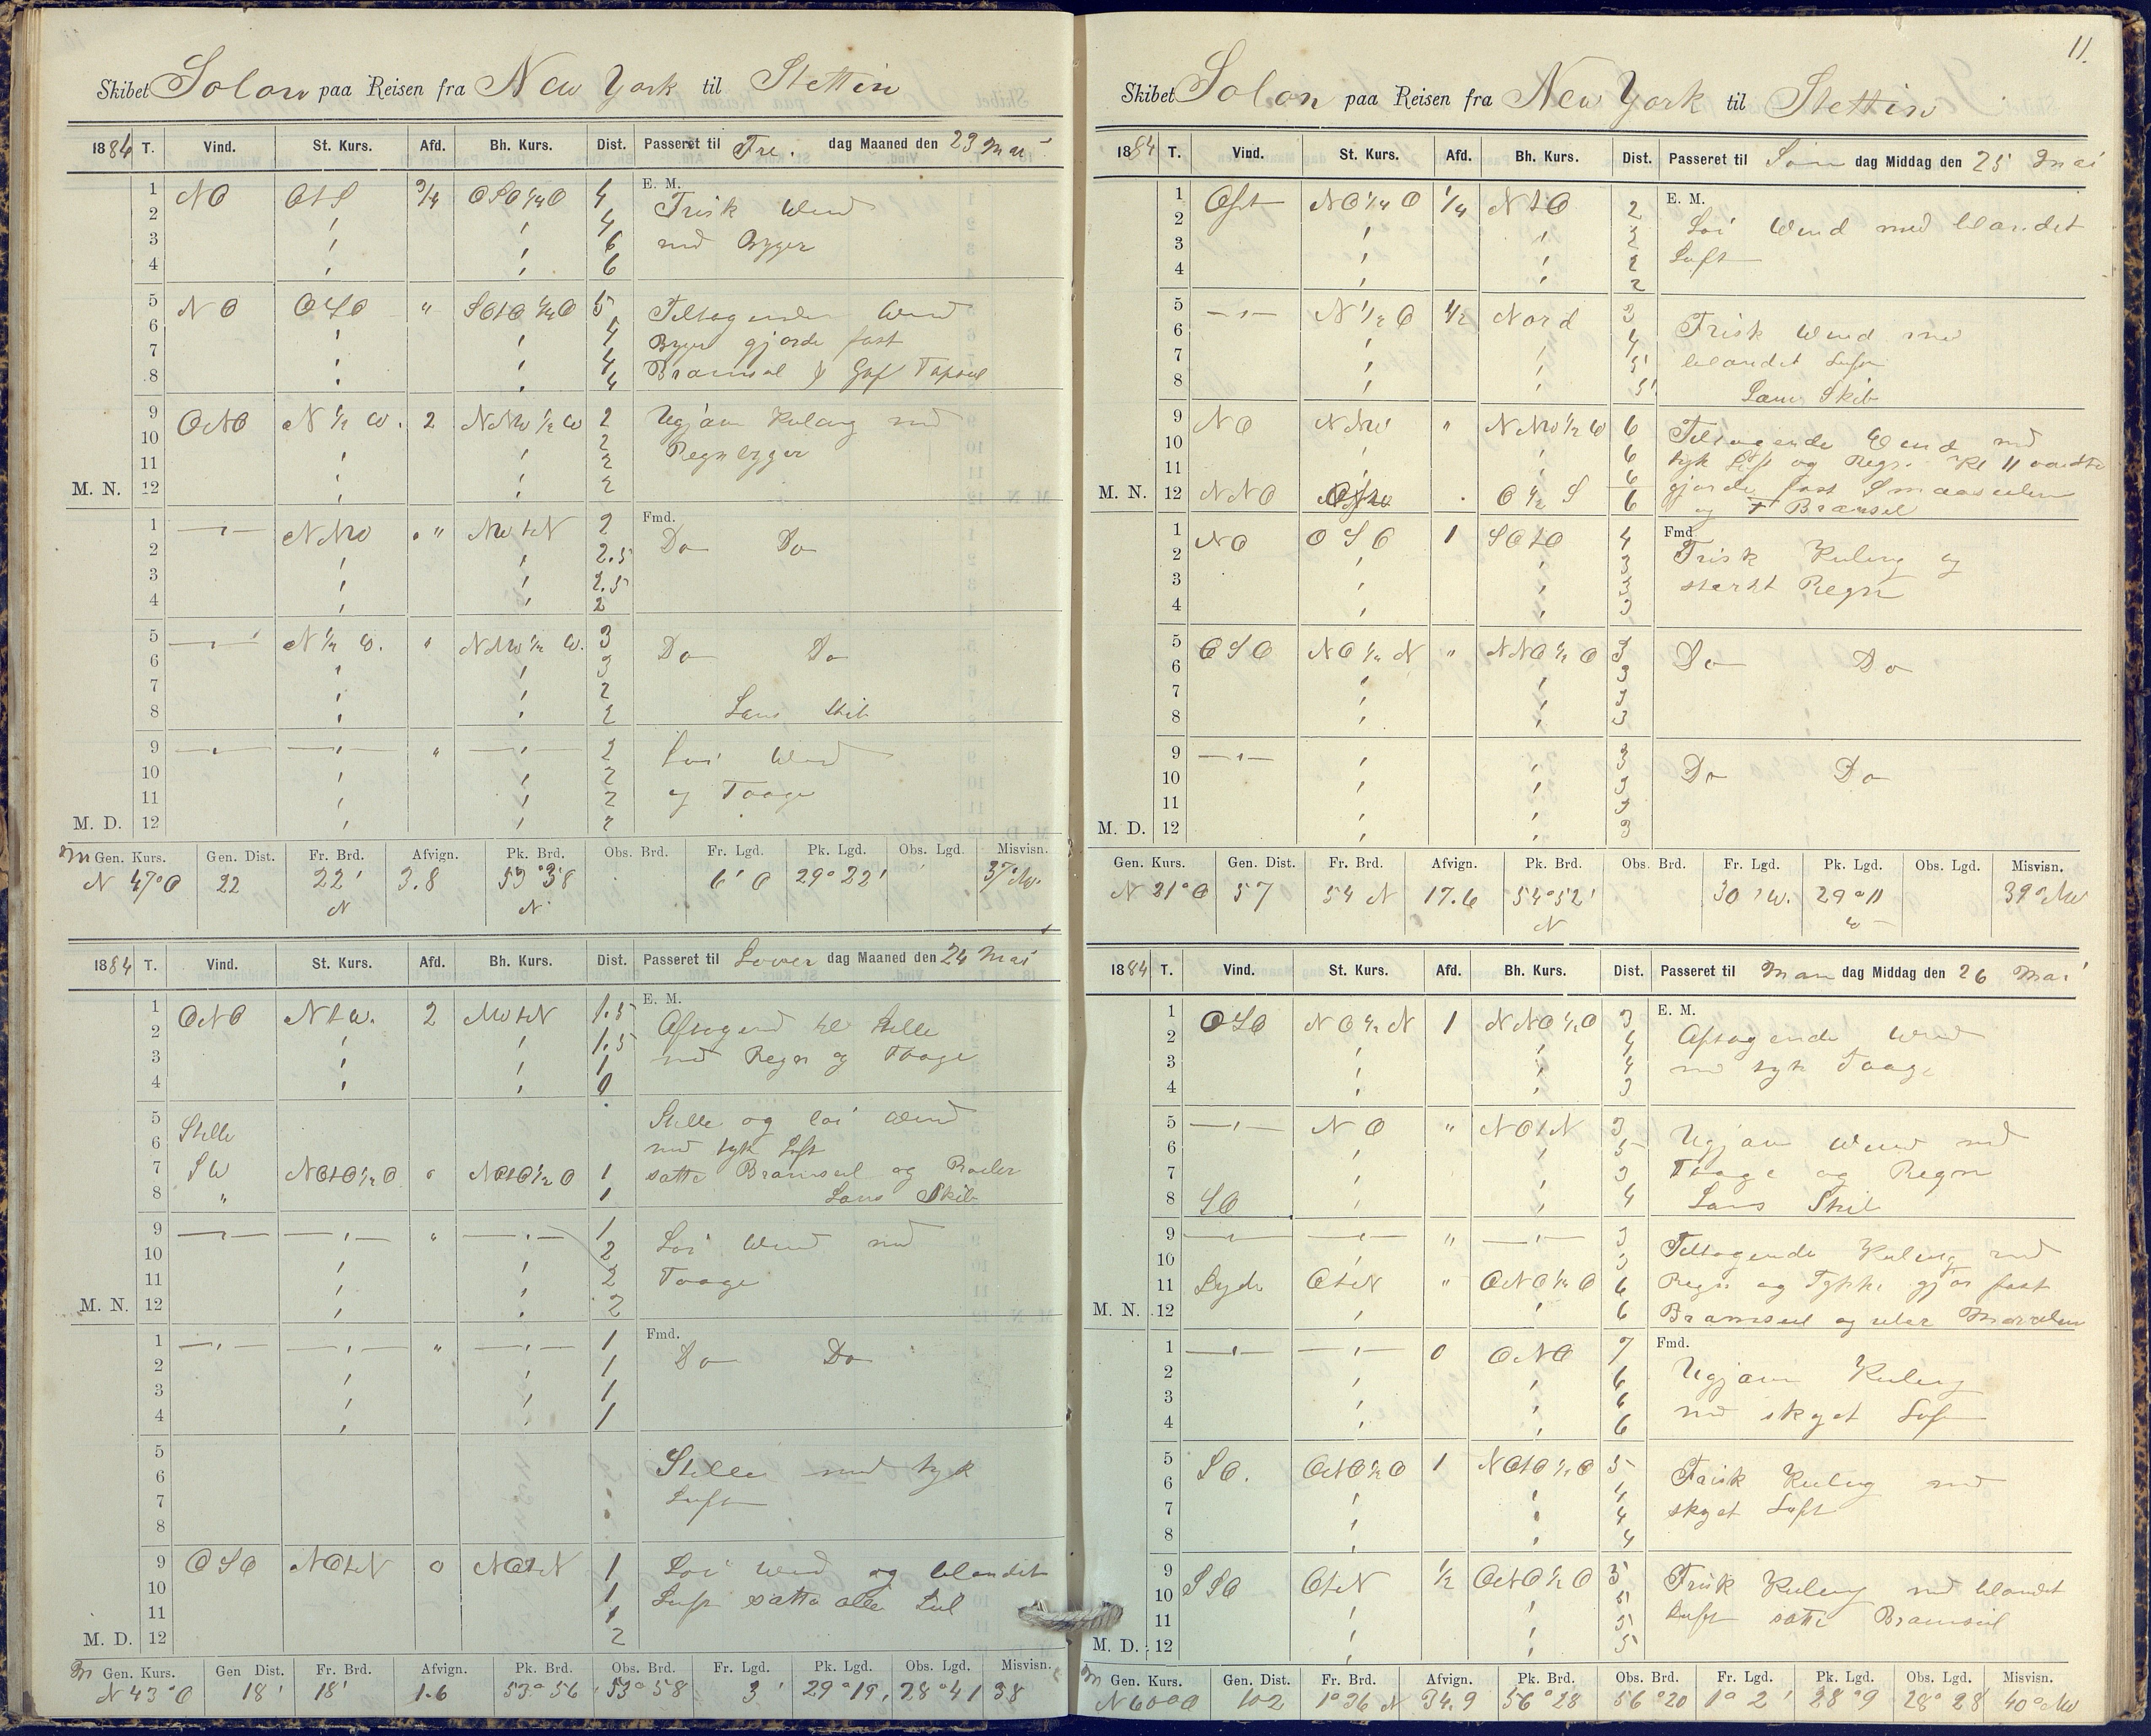 Skibet Solon paa Reisen fra New York til Stettin
1884 T. Vind. St. Kurs. Afd. Bh. Kurs. Dist. Passeret til Fre. dag Maaned den 23 Mai
E. M.
1 NO OtS 3/4 OSO 1/4 O 4 Frisk Wind
2 4
3 6 med Byger
4 6
5 NO OSO " SOtO 1/4 O 5 Tiltagende Wind
6 4 Byger gjorde fast
7 4
8 4 Bramseil & Gaf Topseil
9 ONO N 1/2 W. 2 NNW 1/2 W 2 Ugjævn Kuling med
10 2 Regnbyger
11 2
M. N. 12 2
Fmd.
1 NNW " NWtN 2 Do Do
2 2.5
3 2.5
4 2
5 N 1/2 W. " NNW 1/2 W. 3 Do Do
6 3
7 2
8 2 Lens Skib
9 " 2 Løi Wind
10 2
11 2 og Taage
M. D. 12 2
Gen. Kurs. Gen. Dist. Fr. Brd. Afvign. Pk. Brd. Obs. Brd. Fr. Lgd. Pk. Lgd. Obs. Lgd. Misvisn.
N 47° O 22 22' N 3.8 53° 38 N 6' O 29° 22' 37° NW.
1884 T. Vind. St. Kurs. Afd. Bh. Kurs. Dist. Passeret til Løver dag Maaned den 24 Mai
E. M.
1 ONO NtW. 2 NWtN 1.5 Aftagend til Stille
2 1.5
3 1 med Regn og Taage
4 0
5 Stille Stille og løi Wind
6 med tyk Luft
7 SW NOtO 1/2 O NOtO 1/2 O 1 satte Bramseil og Røiler
8 " 1 Lens Skib
9 " 1 Løi Wind med
10 2
11 2 Taage
M. N. 12 2
Fmd.
1 " 1 Do Do
2 1
3 1
4 1
5
6 Stille med tyk
7 Luft
8
9 OSO NOtN 0 NOtN 1 Løi Wind og blandet
10 1 Luft satte alle Seil
11 1
M. D. 12 2
Gen. Kurs. Gen Dist. Fr. Brd. Afvign. Pk. Brd. Obs. Brd. Fr. Lgd. Pk. Lgd. Obs. Lgd. Misvisn.
N 43° O 18' 18' 1.6 53° 56 53° 58 3' 29° 19' 28° 41 38
11.
Skibet Solon paa Reisen fra New York til Stettin
1884 T. Vind. St. Kurs. Afd. Bh. Kurs. Dist. Passeret til Søn dag Middag den 25 Mai
E. M.
1 Ost NO 1/4 O 1/4 NtO 2 Løi Wind med blandet
2 2
3 2 Luft
4 2
5 N 1/2 O 1/2 Nord 3 Frisk Wind med
6 4
7 5 blandet Luft
8 5 Lens Skib
9 NO NNW " NNW 1/2 W 6 Tiltagende Wind med
10 6 tyk Luft og Regn. Kl 11 vendte
11 6 gjorde fast Smaaseilene
M. N. 12 NNO O 1/2 S 6 og Bramseil
Fmd.
1 NO OSO 1 SOtO 4 Frisk Kuling og
2 3
3 3 sterkt Regn
4 3
5 OSO NO 1/2 N " NNO 1/2 O 3 Do Do
6 3
7 3
8 3
9 3 Do Do
10 3
11 3
M. D. 12 3
Gen. Kurs. Gen. Dist. Fr. Brd. Afvign. Pk. Brd. Obs. Brd. Fr. Lgd. Pk. Lgd. Obs. Lgd. Misvisn.
N 21° O 57 54 N 17.6 54° 52' N 30' W. 29° 11 W 39° NW
1884 T. Vind. St. Kurs. Afd. Bh. Kurs. Dist. Passeret til Man dag Middag den 26 Mai
E. M.
1 OSO NO 1/2 N 1 NNO 1/2 O 3 Aftagende Wind
2 4
3 4 med tyk Taage
4 3
5 NO " NOtN 3 Ugjævn Wind med
6 5
7 3 Taage og Regn
8 SO 4 Lens Skib
9 " 3 Tiltagende Kuling med
10 3
11 Syd OtN " ONO 1/2 O 6 Regn og Tykke gjør fast
M. N. 12 6 Bramseil og
Fmd.
1 0 ONO 7 Ugjævn Kuling
2 6
3 6 med skyet Luft
4 6
5 SO. ONO 1/2 O 1 NOtO 1/2 O 5 Frisk Kuling med
6 4
7 4 skyet Luft
8 4
9 SSO OtN 1/2 ONO 1/2 O 5 Frisk Kuling med blandet
10 5 Luft satte Bramseil
11 5
M. D. 12 5
Gen. Kurs. Gen. Dist. Fr. Brd. Afvign. Pk. Brd. Obs. Brd. Fr. Lgd. Pk. Lgd. Obs. Lgd. Misvisn.
N 60° O 102 1° 36 N 34.9 56° 28 56° 20 1° 2' 28° 9 28° 28' 40° NW